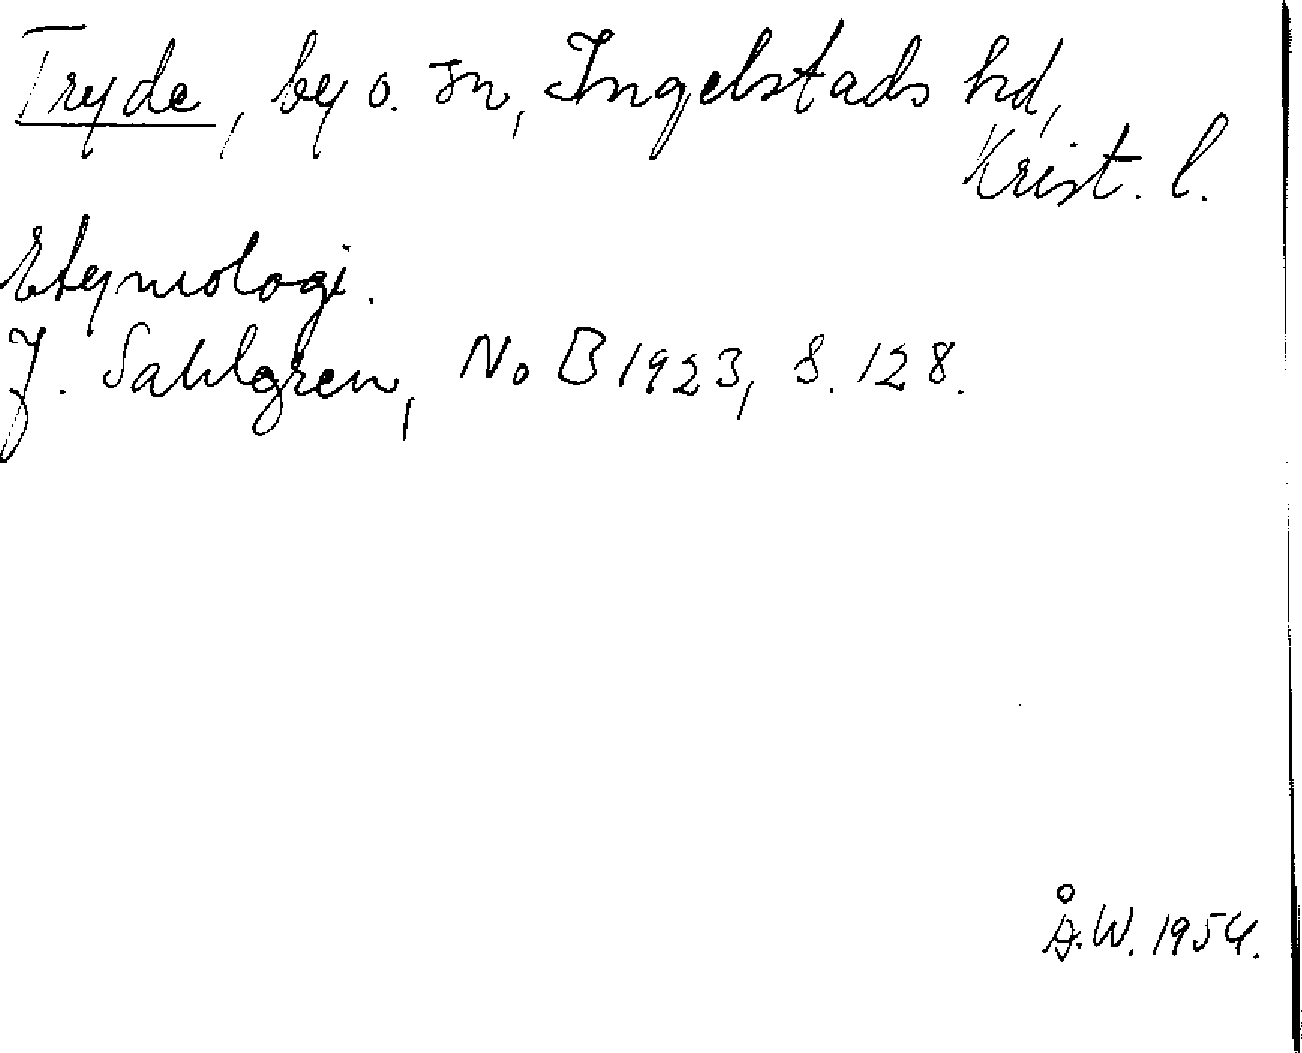 Tryde, by o. sn, Ingelstads hd,
Krist. l.
Etymologi.
J. Sahlgren, NoB 1923, S. 128.
Å.W. 1954.